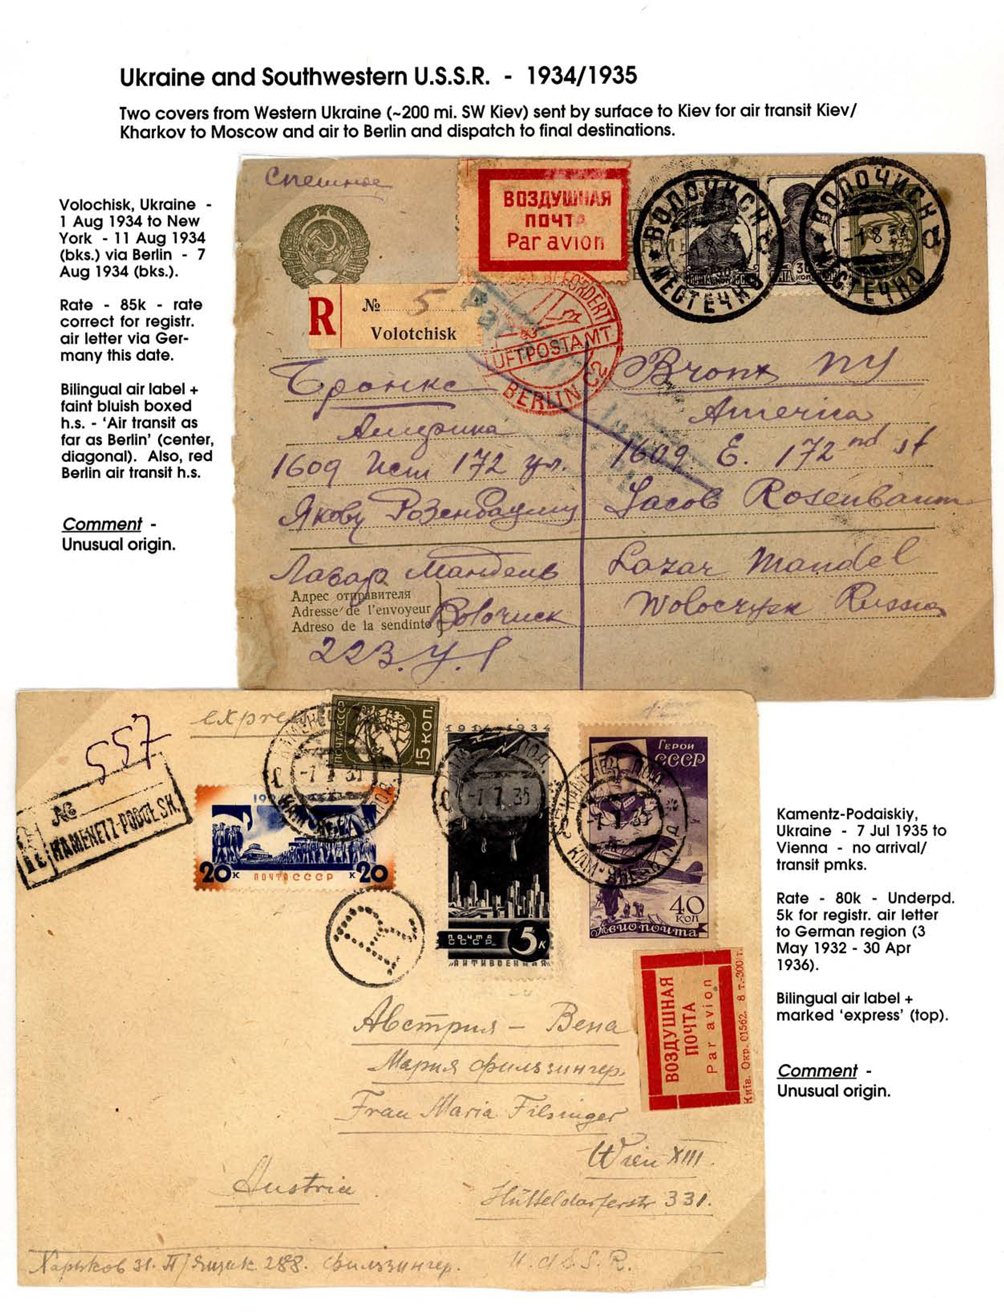 Ukraine and Southwestern U.S.S.R. - 1934/1935
Two covers from Western Ukraine (~200 mi. SW Kiev) sent by surface to Kiev for air transit Kiev/
Kharkov to Moscow and air to Berlin and dispatch to final destinations.
Volochisk, Ukraine -
1 Aug 1934 to New
York - 11 Aug 1934
(bks.) via Berlin - 7
Aug 1934 (bks.).
Rate - 85k - rate
correct for registr.
air letter via Ger-
many this date.
Bilingual air label +
faint bluish boxed
h.s. - 'Air transit as
far as Berlin' (center,
diagonal). Also, red
Berlin air transit h.s.
Comment -
Unusual origin.
Спешное
ВОЗДУШНАЯ
ПОЧТА
Par avion
ВОЛОЧИСК
МЕСТЕЧКО
ВОЛОЧИСК
-1 8 34
МЕСТЕЧКО
R
№ 5
Volotchisk
LUFTPOSTAMT
BERLIN C2
Бронкс
Америка
1609 Ист 172 ул.
Якову Розенбауму
Bronx NY
America
1609 E. 172nd st
Jacob Rosenbaum
Лазар Мандель
Волочиск
223. У. 1
Адрес отправителя
Adresse de l'envoyeur
Adreso de la sendinto
Lazar Mandel
Woloczysk Russia
express
557
R №
KAMENETZ-PODOLSK.
ПОЧТА СССР
15 КОП.
20 К
ПОЧТА СССР
К 20
1914-1934
ПОЧТА
СССР
5 К
АНТИВОЕННАЯ
ГЕРОИ
СССР
40
КОП
Авиопочта
-7 7 35
R
ВОЗДУШНАЯ
ПОЧТА
Par avion
Київ. Окр. 01562. 8 т.-300 т.
Австрия - Вена
Мария Фильзингер.
Frau Maria Filsinger
Wien XIII.
Austria
Hütteldorferstr 331.
Харьков 31. П/Ящик 288. Фильзингер. U.d.S.S.R.
Kamentz-Podaiskiy,
Ukraine - 7 Jul 1935 to
Vienna - no arrival/
transit pmks.
Rate - 80k - Underpd.
5k for registr. air letter
to German region (3
May 1932 - 30 Apr
1936).
Bilingual air label +
marked 'express' (top).
Comment -
Unusual origin.